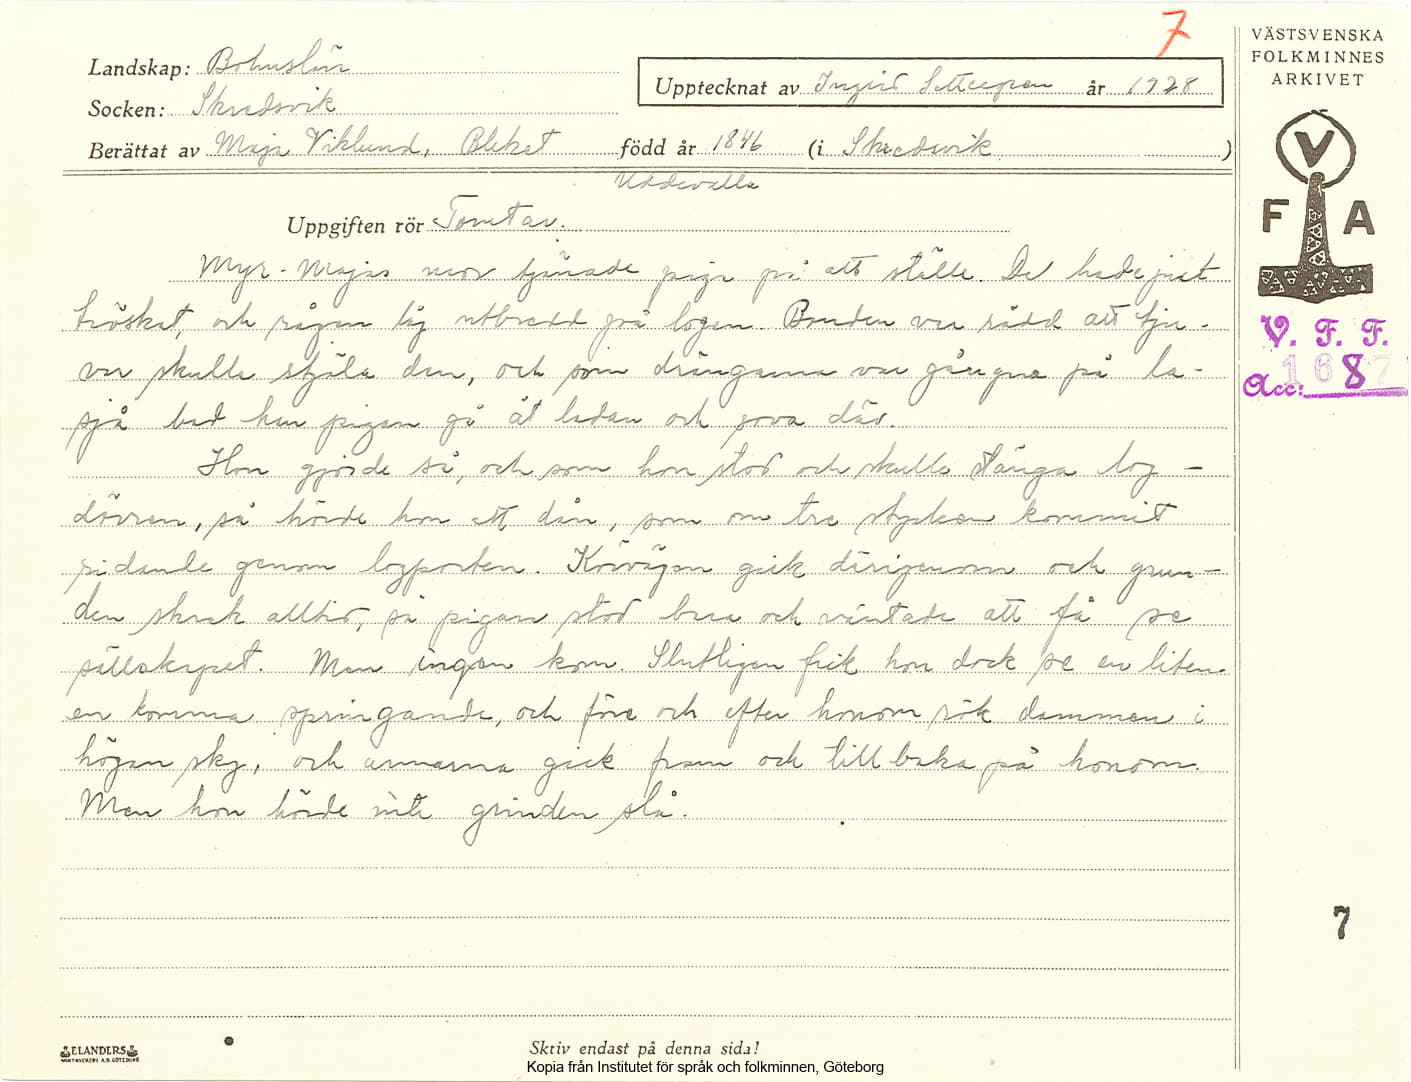 7
VÄSTSVENSKA
FOLKMINNES
ARKIVET
Landskap: Bohuslän
Upptecknat av Ingrid år 1928
Socken: Skredsvik
Berättat av Maja Viklund, Bleket född år 1846 (i Skredsvik )
Uddevalla
Uppgiften rör Tomtar.
Myr-Majas mor tjänade piga på ett ställe. De hade just
tröskat, och rågen låg utbredd på logen. Bonden var rädd att tju-
var skulle stjäla den, och som drängarna var gångna på la-
sjå bad han pigan gå åt ladan och sova där.
Hon gjorde så, och som hon stod och skulle stänga log-
dörren, så hörde hon ett dån, som om tre stycken kommit
ridande genom logporten. Körvägen gick därigenom och grin-
den skrak alltid, så pigan stod bara och väntade att få se
sällskapet. Men ingen kom. Slutligen fick hon dock se en liten
en komma springande, och före och efter honom rök dammen i
högan sky, och armarna gick fram och tillbaka på honom.
Men hon hörde inte grinden slå.
V
F A
V. F. F.
Acc: 1687
7
ELANDERS
Skriv endast på denna sida!
Kopia från Institutet för språk och folkminnen, Göteborg